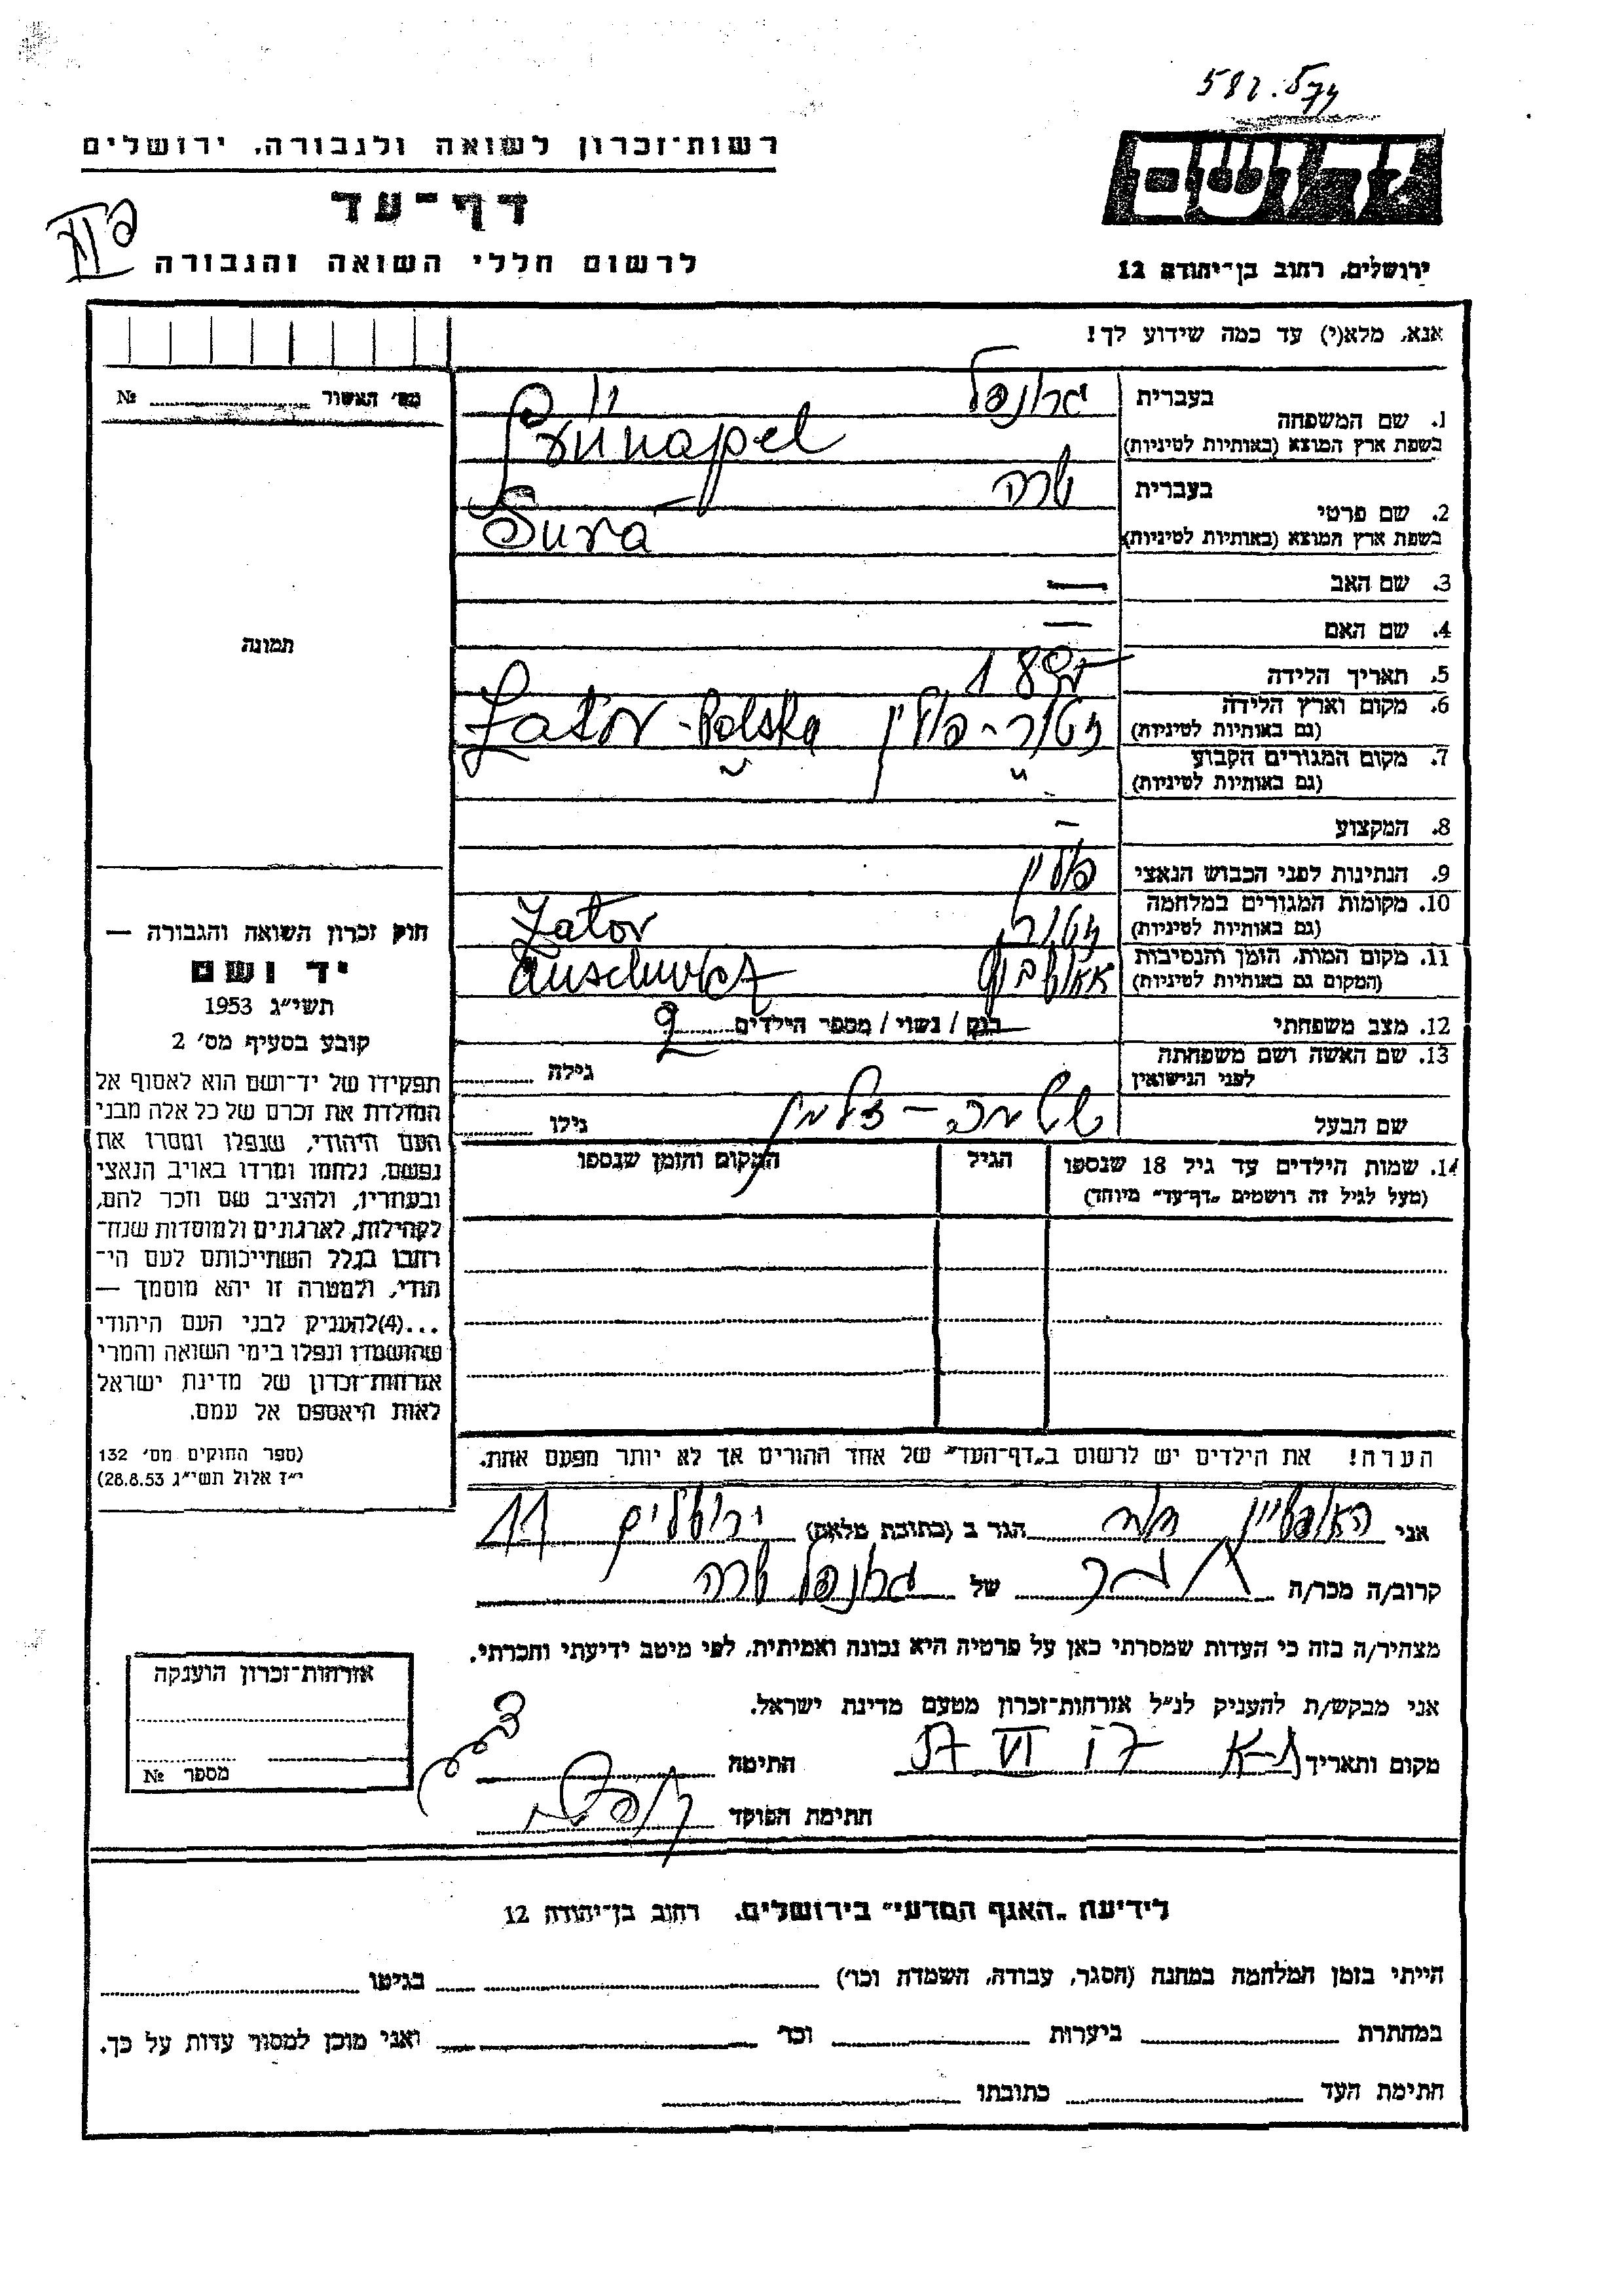 רשות־זכרון לשואה ולגבורה, ירושלים
דף־עד
לרשום חללי השואה והגבורה
יד ושם
ירושלים, רחוב בן־יהודה 12
אנא, מלא(י) עד כמה שידוע לך!
מס׳ האשור № 
תמונה
1. שם המשפחה בעברית גרונפל
בשפת ארץ המוצא (באותיות לטיניות) Grünapel
2. שם פרטי בעברית שרה
בשפת ארץ המוצא (באותיות לטיניות) Sura
3. שם האב —
4. שם האם —
5. תאריך הלידה 1895
6. מקום וארץ הלידה (גם באותיות לטיניות) זטור-פולין Zator-Polska
7. מקום המגורים הקבוע (גם באותיות לטיניות) " "
8. המקצוע —
9. הנתינות לפני הכבוש הנאצי פולין
10. מקומות המגורים במלחמה (גם באותיות לטיניות) זטור Zator
11. מקום המות, הזמן והנסיבות (המקום גם באותיות לטיניות)
12. מצב משפחתי רווק / נשוי / מספר הילדים 2
13. שם האשה ושם משפחתה לפני הנישואין גילה
שם הבעל גילו
14. שמות הילדים עד גיל 18 שנספו הגיל המקום והזמן שנספו
(מעל לגיל זה רושמים „דף־עד״ מיוחד)
הערה! את הילדים יש לרשום ב„דף־העד״ של אחד ההורים אך לא יותר מפעם אחת.
חוק זכרון השואה והגבורה —
יד ושם
תשי״ג 1953
קובע בסעיף מס׳ 2
תפקידו של יד־ושם הוא לאסוף אל
המולדת את זכרם של כל אלה מבני
העם היהודי, שנפלו ומסרו את
נפשם, נלחמו ומרדו באויב הנאצי
ובעוזריו, ולהציב שם וזכר להם,
לקהילות, לארגונים ולמוסדות שנח־
רבו בגלל השתייכותם לעם הי־
הודי, ולמטרה זו יהא מוסמך —
...(4)להעניק לבני העם היהודי
שהושמדו ונפלו בימי השואה והמרי
אזרחות־זכרון של מדינת ישראל
לאות היאספם אל עמם.
(ספר החוקים מס׳ 132
י״ז אלול תשי״ג 28.8.53)
אני הגר ב (כתובת מלאה) ירושלים
קרוב/ה מכר/ה של גרונפל שרה
מצהיר/ה בזה כי העדות שמסרתי כאן על פרטיה היא נכונה ואמיתית, לפי מיטב ידיעתי והכרתי.
אני מבקש/ת להעניק לנ״ל אזרחות־זכרון מטעם מדינת ישראל.
מקום ותאריך ת-א 17 VI 57 חתימה
חתימת הפוקד
אזרחות־זכרון הוענקה
מספר №
לידיעת „האגף המדעי״ בירושלים, רחוב בן־יהודה 12
הייתי בזמן המלחמה במחנה (הסגר, עבודה, השמדה וכו׳) בגיטו
במחתרת ביערות וכו׳ ואני מוכן למסור עדות על כך.
חתימת העד כתובתו